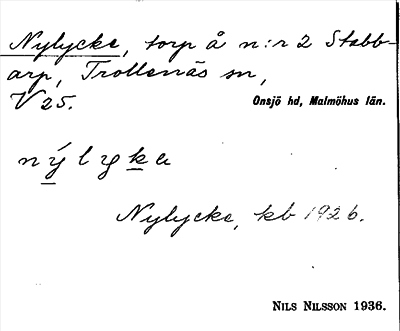 Nylycke, torp å n:r 2 Stabb-
arp, Trollenäs sn,
V 25.
Onsjö hd, Malmöhus län.
nýlyka
Nylycke, kb 1926.
NILS NILSSON 1936.